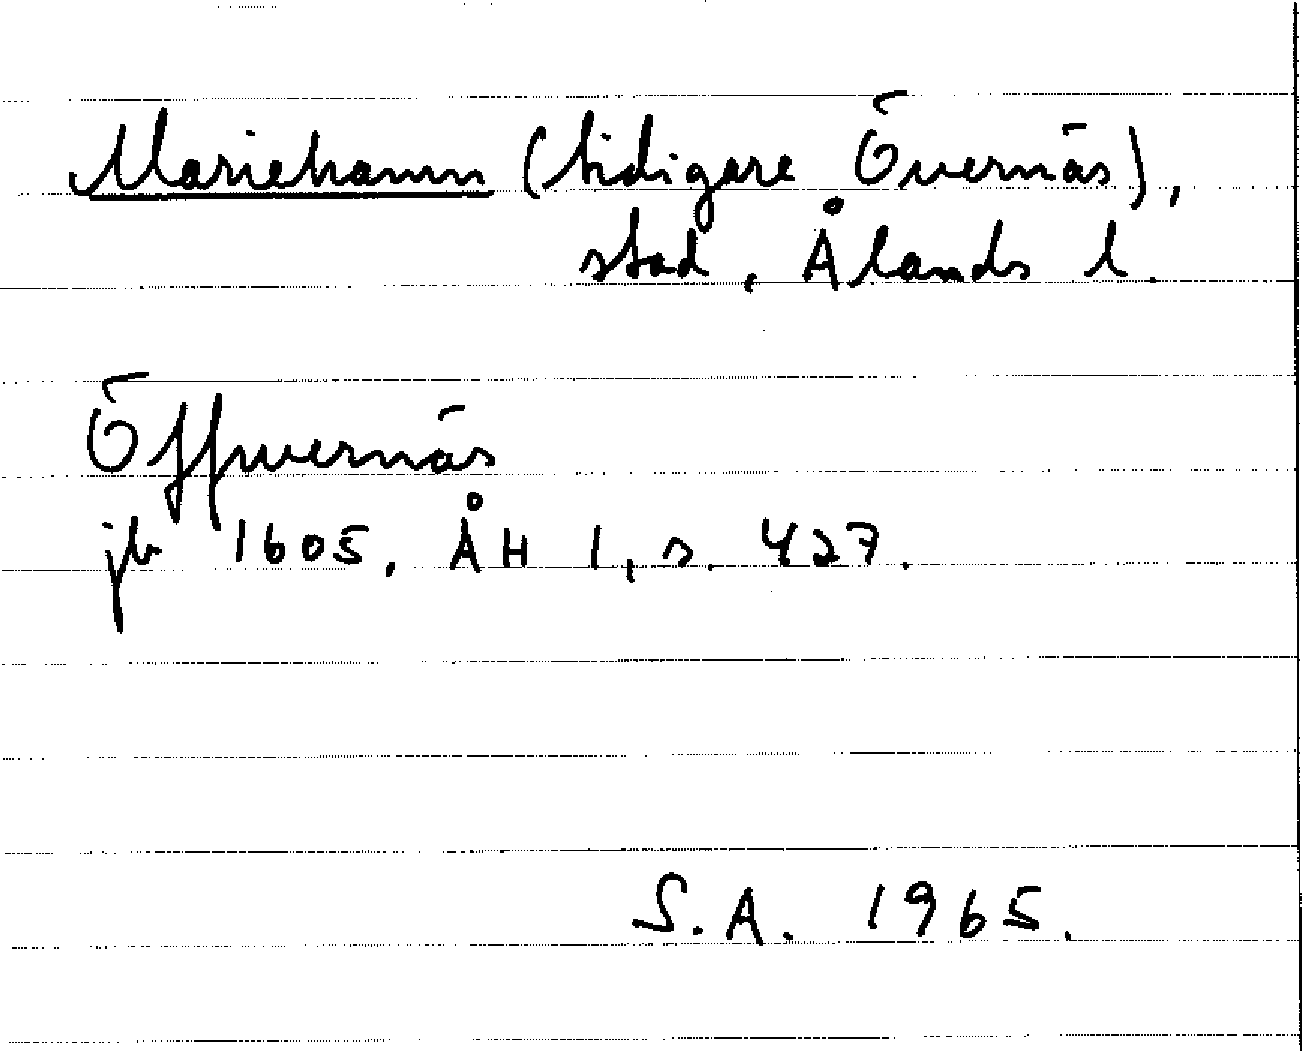 Mariehamn (tidigare Övernäs),
stad, Ålands l.
Öffvernäs
jb 1605, ÅH 1, s. 427.
S.A. 1965.